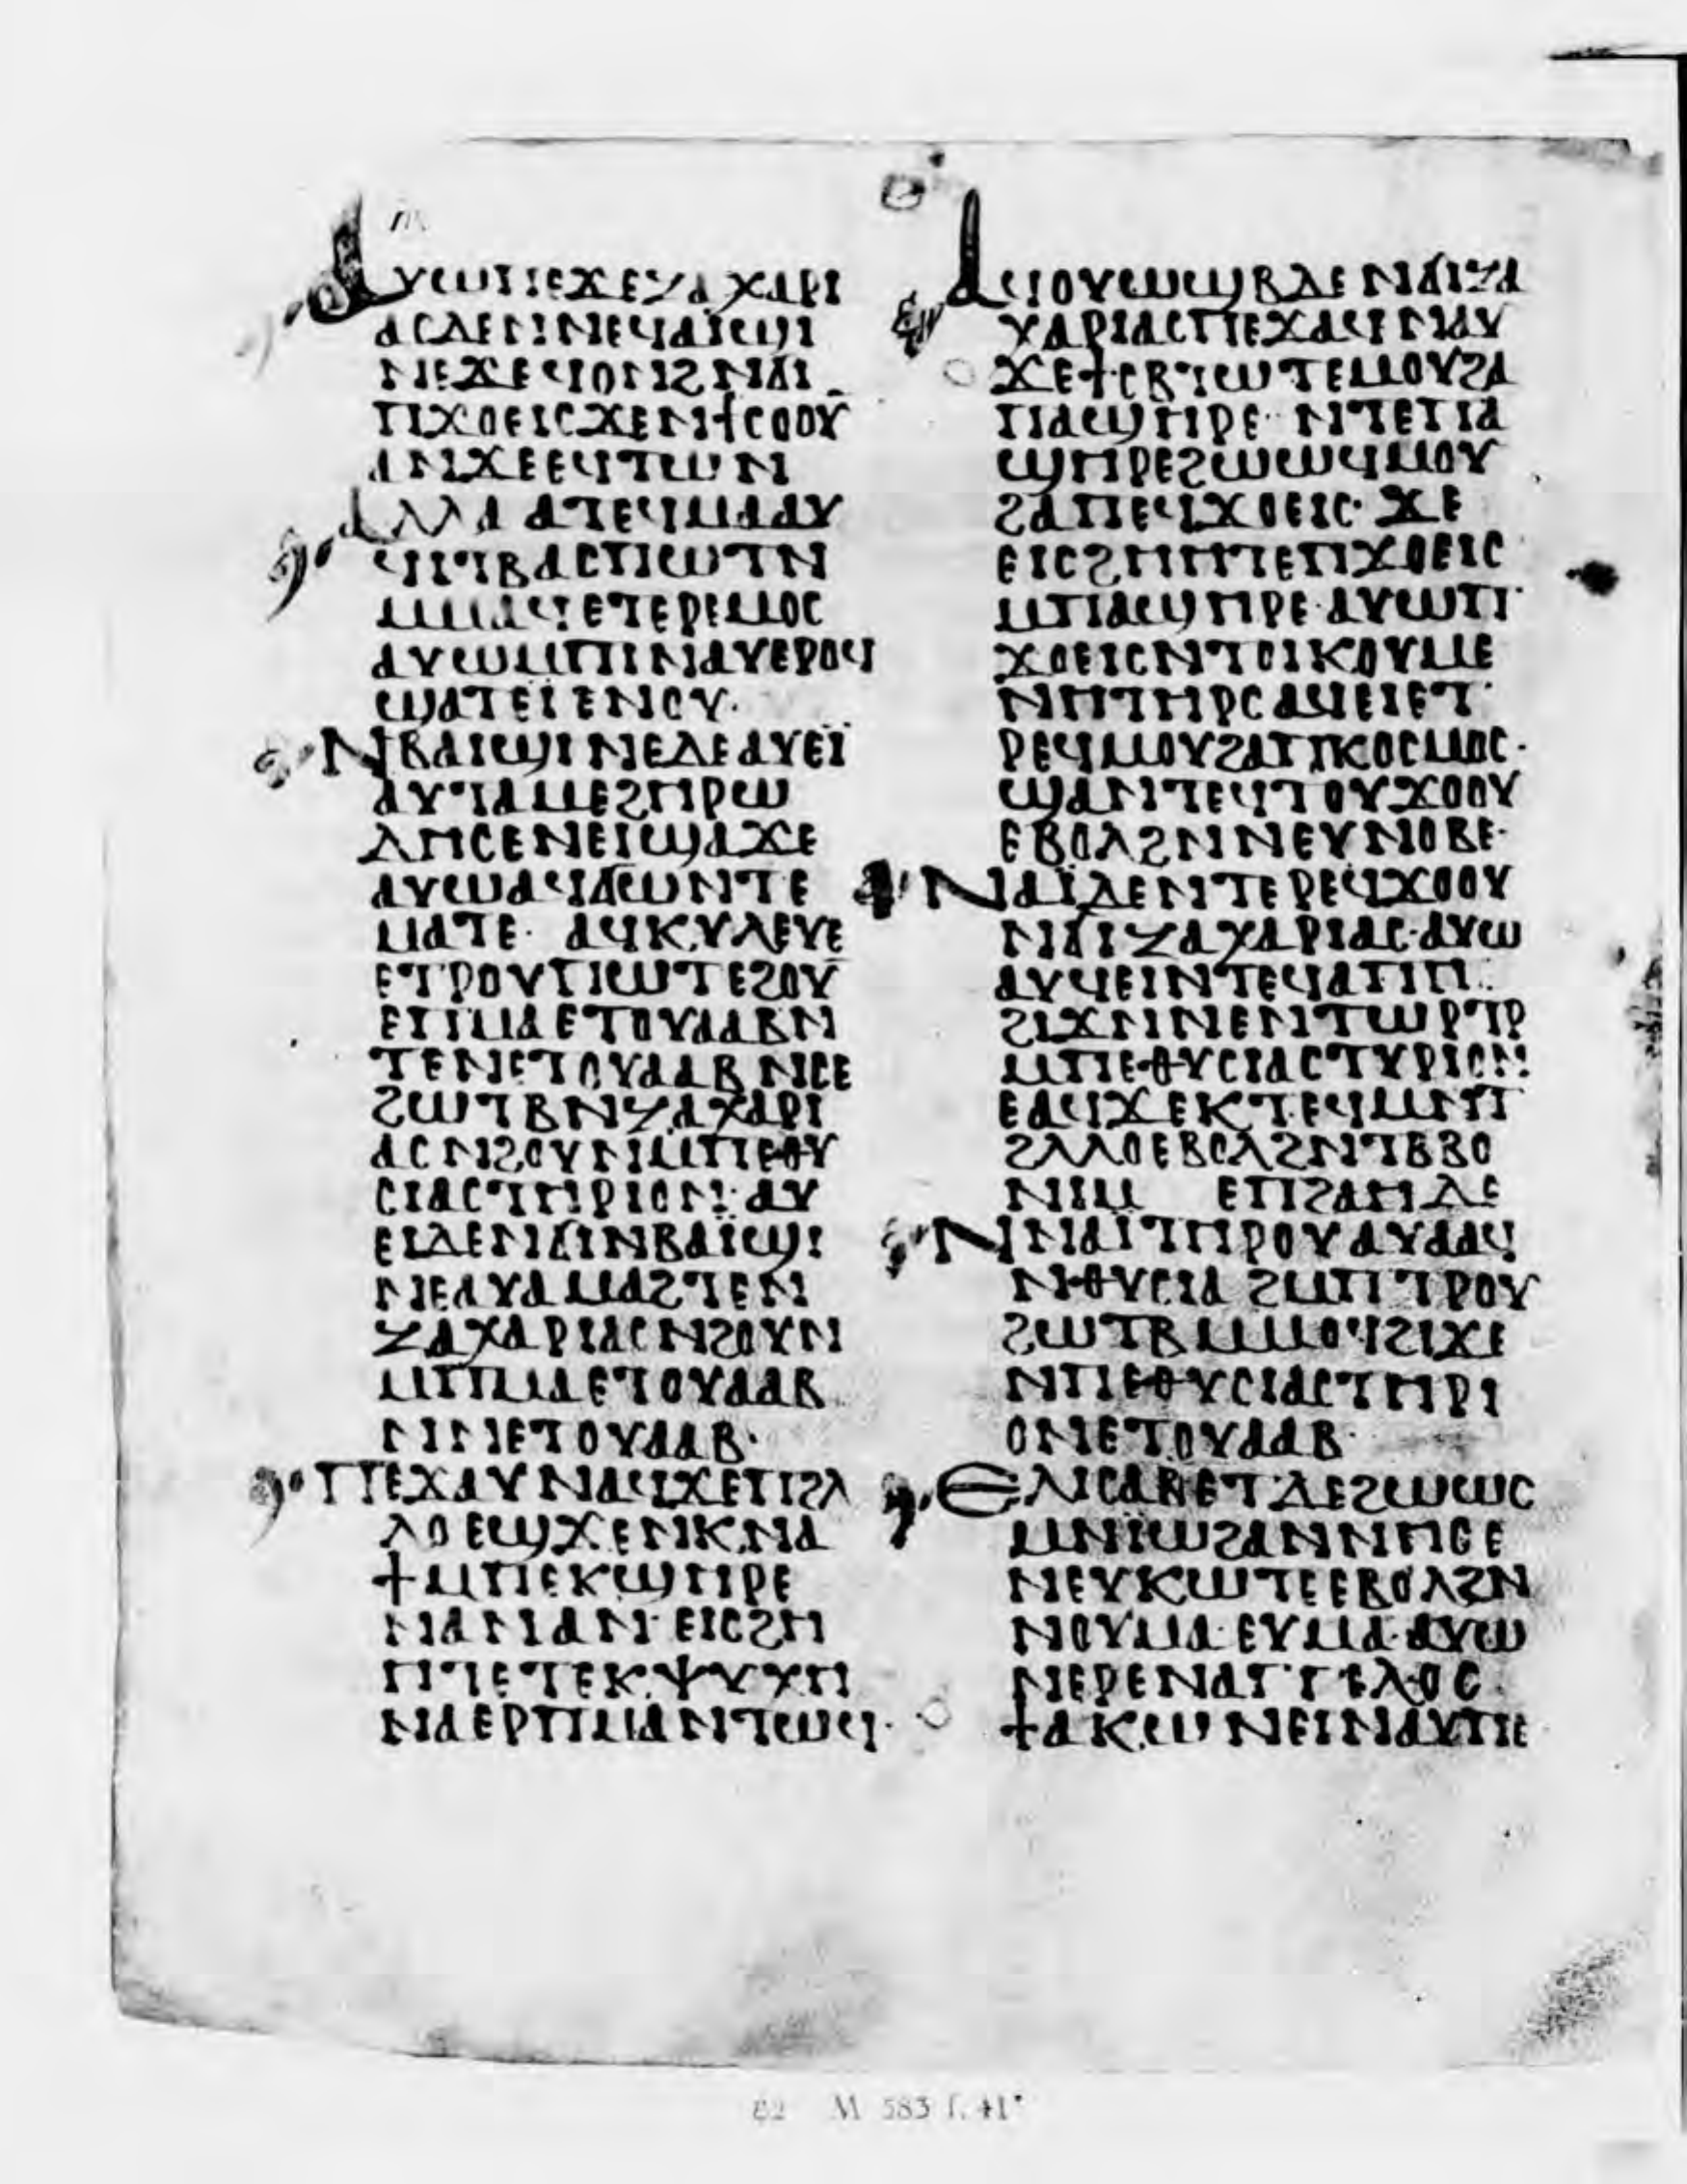 ⲁⲩⲱⲡⲉϫⲉⲍⲁⲭⲁⲣⲓ
ⲁⲥⲇⲉⲛⲛⲉϥⲁⲓ̈ϣⲓ
ⲛⲉϫⲉϥⲟⲛϩⲛϭⲓ
ⲡϫⲟⲉⲓⲥϫⲉⲛϯⲥⲟⲟⲩ
ⲁⲛϫⲉⲉϥⲧⲱⲛ
ⲁⲗⲗⲁ ⲁⲧⲉϥⲙⲁⲁⲩ
ϥⲓⲧⲃⲁⲥⲡⲱⲧⲛ
ⲙⲙⲁϥⲉⲧⲉⲣⲉⲙⲟⲥ
ⲁⲩⲱⲙⲡⲓⲛⲁⲩⲉⲣⲟϥ
ϣⲁⲧⲉⲓⲉⲛⲟⲩ·
ⲛⲃⲁⲓϣⲓⲛⲉⲇⲉⲁⲩⲉⲓ̈
ⲁⲩⲧⲁⲙⲉϩⲏⲣⲱ
ⲇⲏⲥⲉⲛⲉⲓϣⲁϫⲉ
ⲁⲩⲱⲁϥϭⲱⲛⲧⲉ
ⲙⲁⲧⲉ· ⲁϥⲕⲩⲗⲉⲩⲉ
ⲉⲧⲣⲟⲩⲡⲱⲧⲉϩⲟⲩ
ⲉⲡⲙⲁⲉⲧⲟⲩⲁⲁⲃⲛ
ⲧⲉⲛⲉⲧⲟⲩⲁⲁⲃⲛⲥⲉ
ϩⲱⲧⲃⲛⲍⲁⲭⲁⲣⲓ
ⲁⲥⲛϩⲟⲩⲛⲙⲡⲉⲑⲩ
ⲥⲓⲁⲥⲧⲏⲣⲓⲟⲛ· ⲁⲩ
ⲉⲓⲇⲉⲛϭⲓⲛⲃⲁⲓ̈ϣⲓ
ⲛⲉⲁⲩⲁⲙⲁϩⲧⲉⲛ
ⲍⲁⲭⲁⲣⲓⲁⲥⲛϩⲟⲩⲛ
ⲙⲡⲙⲁⲉⲧⲟⲩⲁⲁⲃ
ⲛⲛⲉⲧⲟⲩⲁⲁⲃ·
ⲡⲉϫⲁⲩⲛⲁϥϫⲉⲡϩⲗ
ⲗⲟⲉϣϫⲉⲛⲕⲛⲁ
ϯⲙⲡⲉⲕϣⲏⲣⲉ
ⲛⲁⲛⲁⲛ· ⲉⲓⲥϩⲏ
ⲏⲧⲉⲧⲉⲕⲯⲩⲭⲏ
ⲛⲁⲉⲣⲡⲙⲁⲛⲧⲱϥ·
ⲁϥⲟⲩⲱϣⲃⲇⲉⲛϭⲓⲍⲁ
ⲭⲁⲣⲓⲁⲥⲡⲉϫⲁϥⲛⲁⲩ
ϫⲉϯⲥⲃⲧⲱⲧⲉⲙⲟⲩϩⲁ
ⲡⲁϣⲏⲣⲉ· ⲛⲧⲉⲡⲁ
ϣⲏⲣⲉϩⲱⲱϥⲙⲟⲩ
ϩⲁⲡⲉϥϫⲟⲉⲓⲥ· ϫⲉ
ⲉⲓⲥϩⲏⲏⲧⲉⲡϫⲟⲉⲓⲥ
ⲙⲡⲁϣⲏⲣⲉ· ⲁⲩⲱⲡ
ϫⲟⲉⲓⲥⲛⲧⲟⲓⲕⲟⲩⲙⲉ
ⲛⲏⲧⲏⲣⲥⲁϥⲉⲓⲉⲧ
ⲣⲉϥⲙⲟⲩϩⲁⲡⲕⲟⲥⲙⲟⲥ·
ϣⲁⲛⲧⲉϥⲧⲟⲩϫⲟⲟⲩ
ⲉⲃⲟⲗϩⲛⲛⲉⲩⲛⲟⲃⲉ·
ⲛⲁⲓ̈ⲇⲉⲛⲧⲉⲣⲉϥϫⲟⲟⲩ
ⲛϭⲓⲍⲁⲭⲁⲣⲓⲁⲥ· ⲁⲩⲱ
ⲁⲩϥⲉⲓⲛⲧⲉϥⲁⲡⲏ
ϩⲓϫⲛⲛⲉⲛⲧⲱⲣⲧⲣ
ⲙⲡⲉⲑⲩⲥⲓⲁⲥⲧⲩⲣⲓⲟⲛ
ⲉⲁϥϫⲉⲕⲧⲉϥⲙⲛⲧ
ϩⲗⲗⲟⲉⲃⲟⲗϩⲛⲧⲃⲃⲟ
ⲛⲓⲙ ⲉⲡϩⲁⲏⲇⲉ
ⲛⲛⲁⲓ̈ⲧⲏⲣⲟⲩⲁⲩⲁⲁϥ
ⲛⲑⲩⲥⲓⲁϩⲙⲡⲧⲣⲟⲩ
ϩⲱⲧⲃⲙⲙⲟϥϩⲓϫⲉ
ⲛⲡⲉⲑⲩⲥⲓⲁⲥⲧⲏⲣⲓ
ⲟⲛⲉⲧⲟⲩⲁⲁⲃ·
ⲉⲗⲓⲥⲁⲃⲉⲧⲇⲉϩⲱⲱⲥ
ⲙⲛⲓ̈ⲱϩⲁⲛⲛⲏⲥⲉ
ⲛⲉⲩⲕⲱⲧⲉⲉⲃⲟⲗϩⲛ
ⲛⲟⲩⲙⲁ· ⲉⲩⲙⲁ· ⲁⲩⲱ
ⲛⲉⲣⲉⲛⲁⲅⲅⲉⲗⲟⲥ
ϯⲁⲕⲱⲛⲉⲓⲛⲁⲩⲡⲉ
82 M 583 f. 41ᵛ